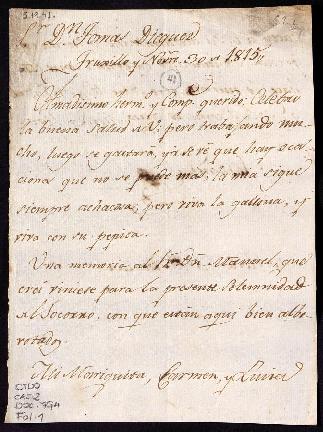 5.12.41.
Sr Dn Tomas Dieguez
Truxillo y Novre 30 de 1815,,
41
Amadisimo herm.o y Comp.e querido: Celebro
la buena salud de V. pero trabajando mu-
cho, luego se gastará, ya se vé que hay oca-
ciones que no se puede mas; la mia sigue
siempre achacosa; pero viva la gallina, y
viva con su pepita.
Una memoria al Sor Dn Manuel, que
crei viniese para la presente Solemnidad
del Socorro, con que estan aqui bien albo-
rotados
Mi Mariquita, Carmen, y Luisa
CAE2
DOC. 994
Fol. 1